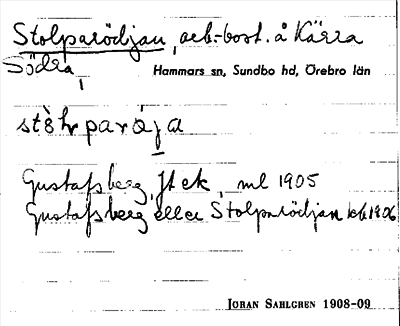 Stolparödjan, arb.-bost. å Kärra
Södra,
Hammars sn, Sundbo hd, Örebro län
Gustafsberg, Jt ek, ml 1905
Gustafsberg eller Stolparödjan kb 1906
JÖRAN SAHLGREN 1908-09